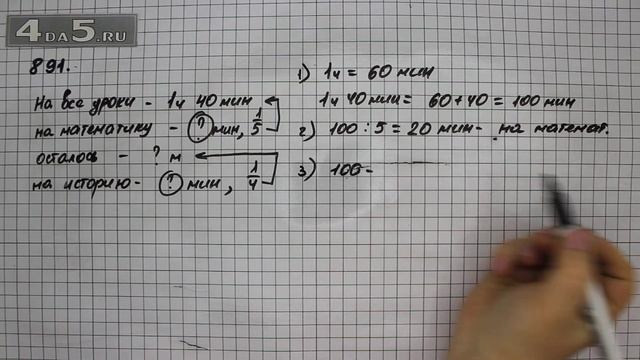 4DA5.RU
891.
На все уроки - 1ч 40 мин
на математику - ? мин, 1/5
осталось - ? м
на историю - ? мин, 1/4
1) 1ч = 60 мин
1ч 40 мин = 60 + 40 = 100 мин
2) 100 : 5 = 20 мин - на математ.
3) 100 -